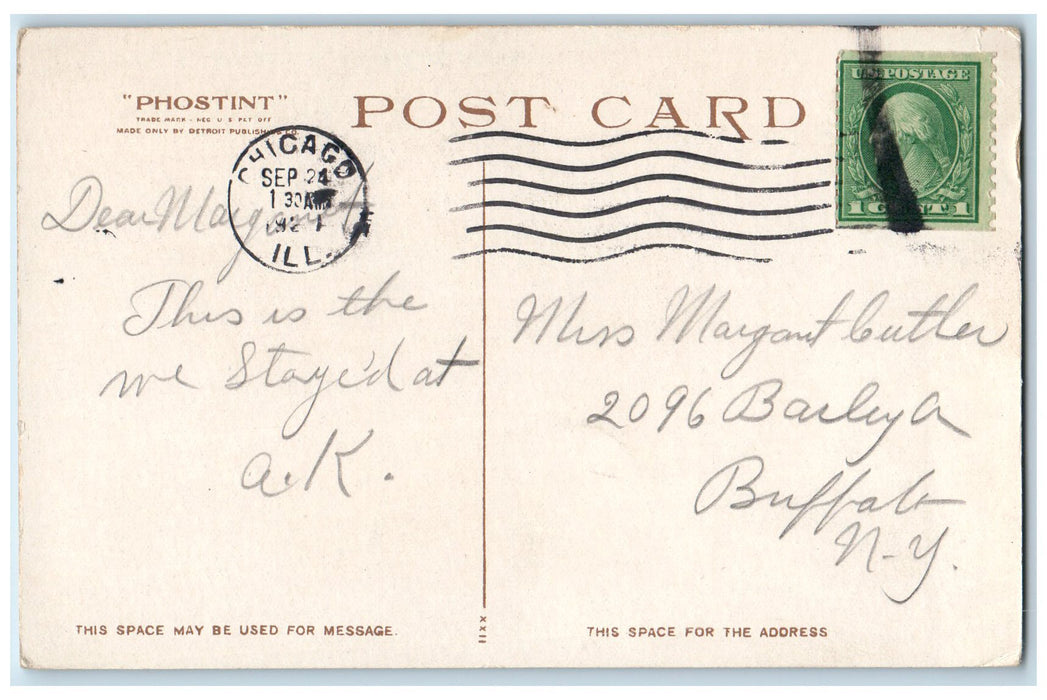 "PHOSTINT"
TRADE MARK - REG U S PAT OFF
MADE ONLY BY DETROIT PUBLISHING CO
POST CARD
U.S. POSTAGE
1 CENT 1
CHICAGO
SEP 24
1 30 AM
192 1
ILL.
Dear Margaret
This is the
we Stayed at
a.K.
Miss Margaret Cutler
2096 Bailey A
Buffalo
N-Y.
THIS SPACE MAY BE USED FOR MESSAGE.
THIS SPACE FOR THE ADDRESS